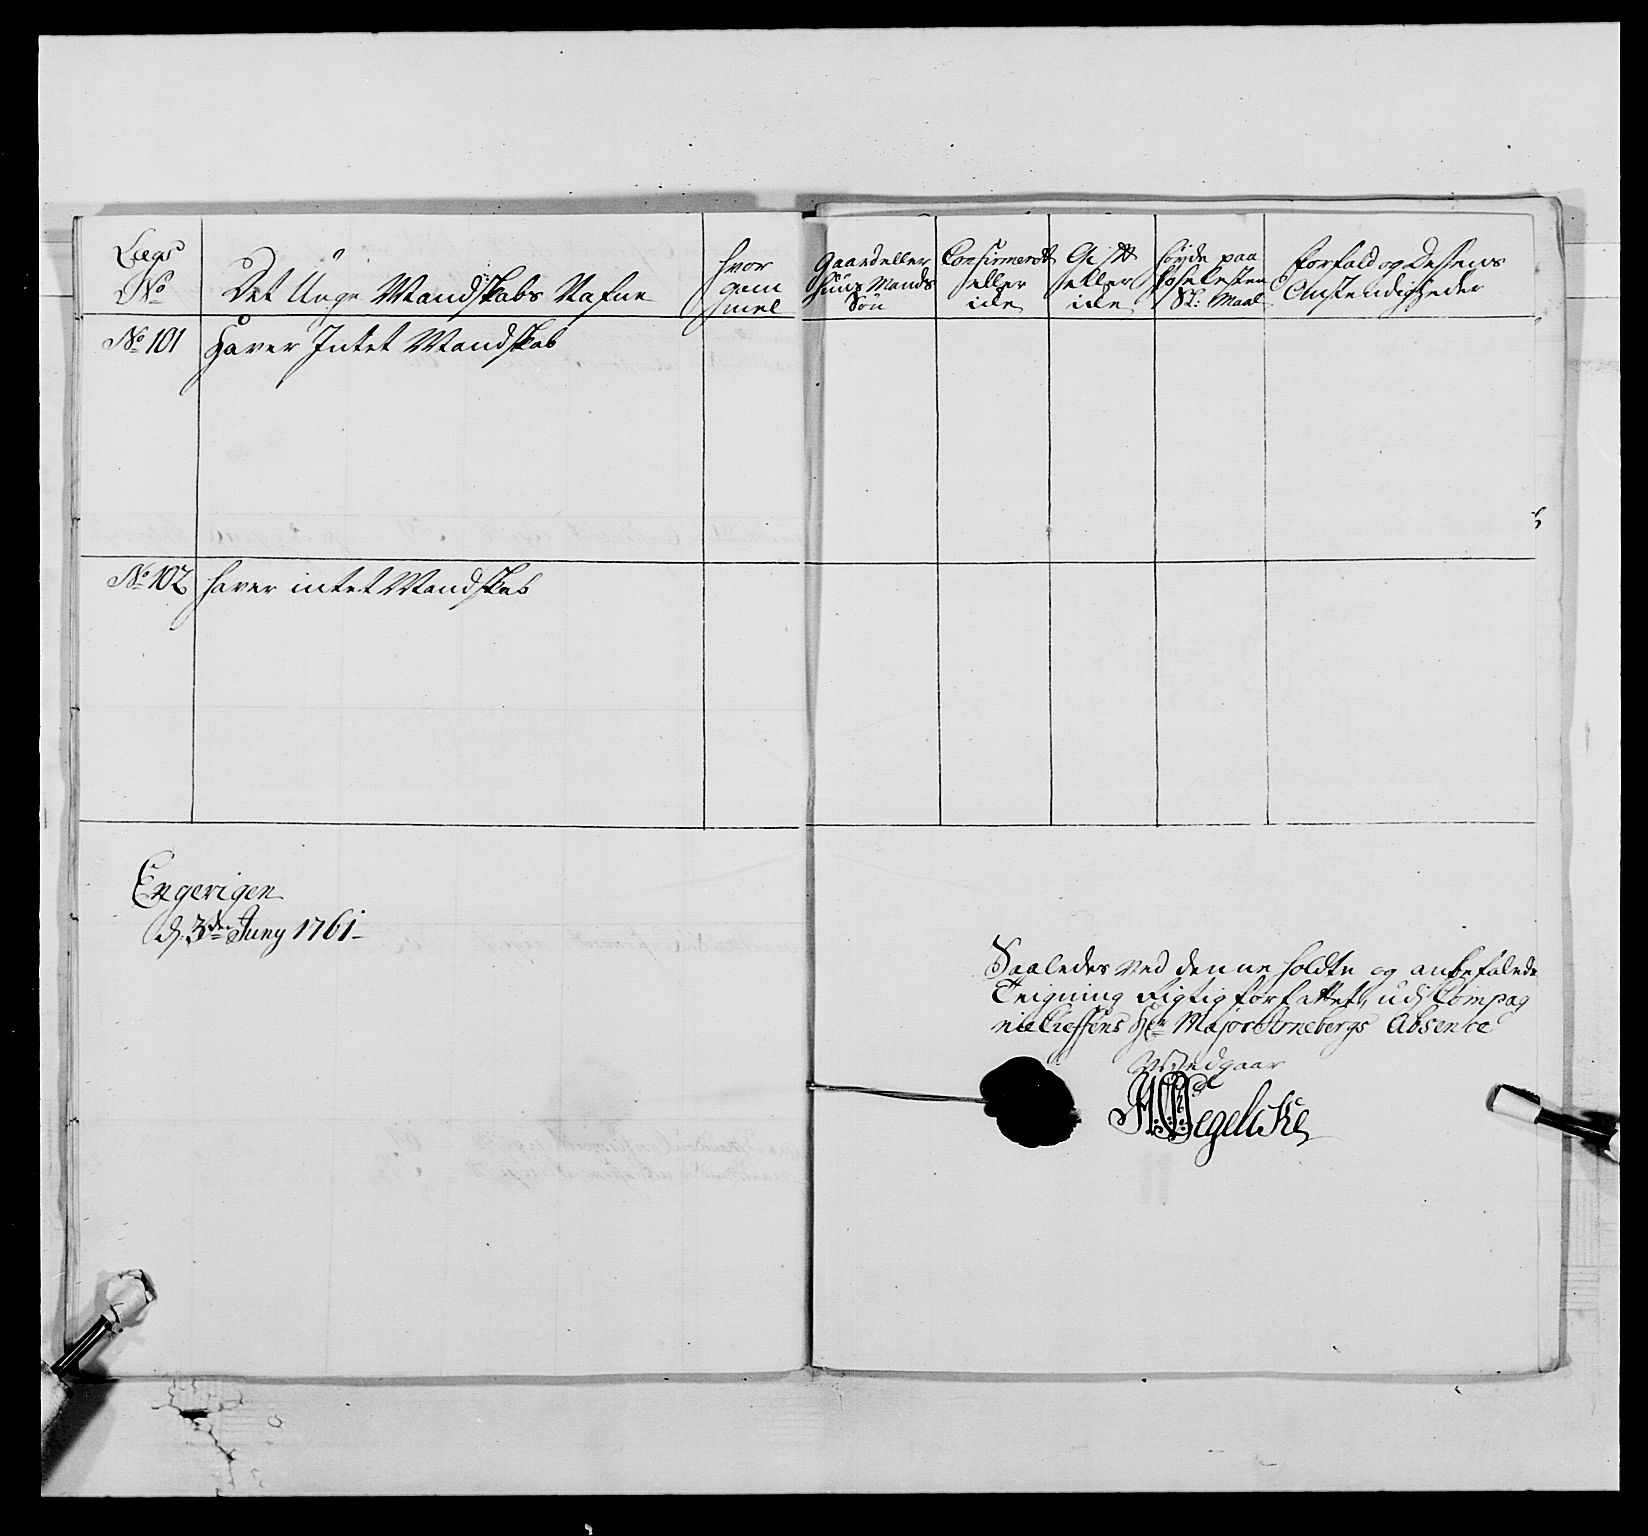 Lægs
No
Det Unge Mandskabs Nafne
Hvor
gam
mel
Gaard eller
Huus Mands
Søn
Confirmerdt
eller
icke
Gift
eller
icke
Høyde paa
Hoselesten
St: Maal
Forfald og Dessens
Omstendigheder
No 101
Haver Intet Mandskab
No 102
haver intet Mandskab
Engerigen
d. 3den Juny 1761
Saaledes ved denne holdte og anbefalede
Teigning rigtig forfattet, udj Compag
nie Cheffens Hr Major Arnebergs Absence
Vestedgaar
Wegelcke